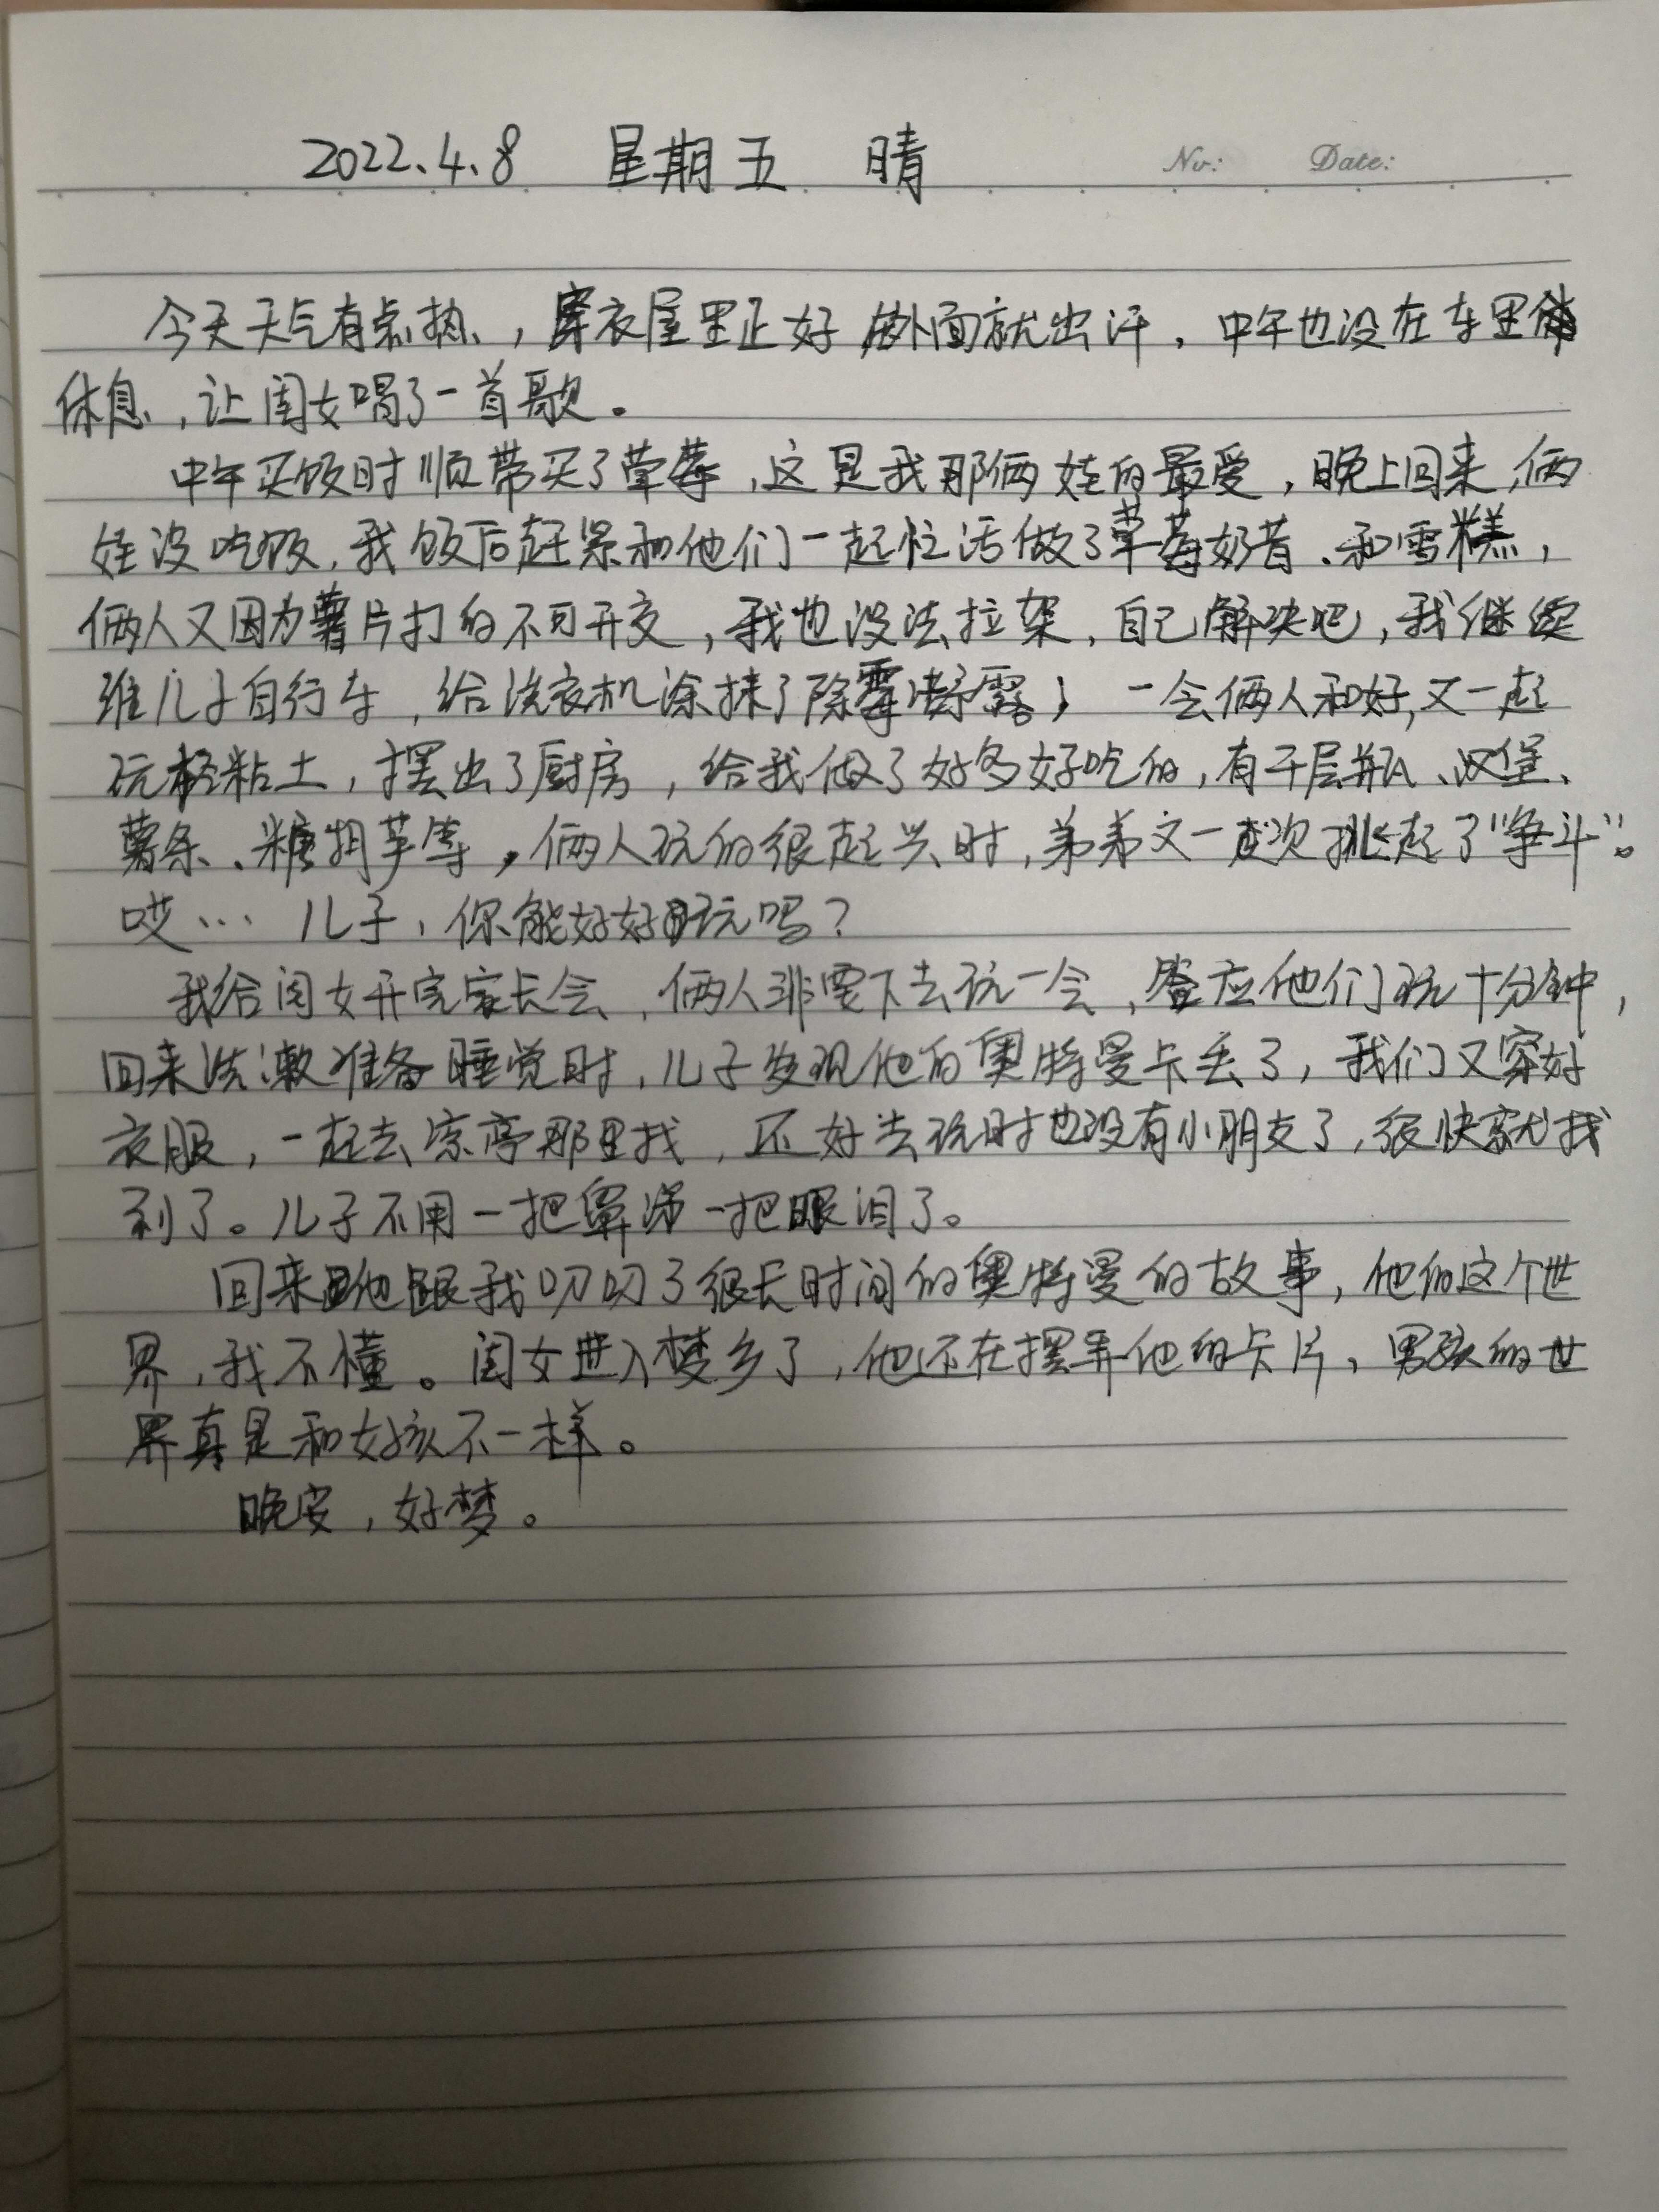 2022.4.8 星期五 晴
No: Date:
今天天气有点热，穿衣屋里正好 外面就出汗，中午也没在车里
休息，让闺女喝了一首歌。
中午买饭时顺带买了草莓，这是我那俩娃的最爱，晚上回来，俩
娃没吃饭，我饭后赶紧和他们一起忙活做了草莓奶昔、和雪糕，
俩人又因为薯片打的不可开交，我也没法拉架，自己解决吧，我继续
维儿子自行车，给洗衣机涂抹了除霉啫露，一会俩人和好，又一起
玩轻粘土，摆出了厨房，给我做了好多好吃的，有千层瓶、汉堡、
薯条、糖担芋等，俩人玩的很起兴时，弟弟又一次挑起了“争斗”。
哎… 儿子，你能好好玩吗？
我给闺女开完家长会，俩人非要下去玩一会，答应他们玩十分钟，
回来洗漱准备睡觉时，儿子发现他的奥特曼卡丢了，我们又穿好
衣服，一起去凉亭那里找，还好去玩时也没有小朋友了，很快就找
到了。儿子不用一把鼻涕一把眼泪了。
回来他跟我叨叨了很长时间的奥特曼的故事，他的这个世
界，我不懂。闺女进入梦乡了，他还在摆弄他的卡片，男孩的世
界真是和女孩不一样。
晚安，好梦。